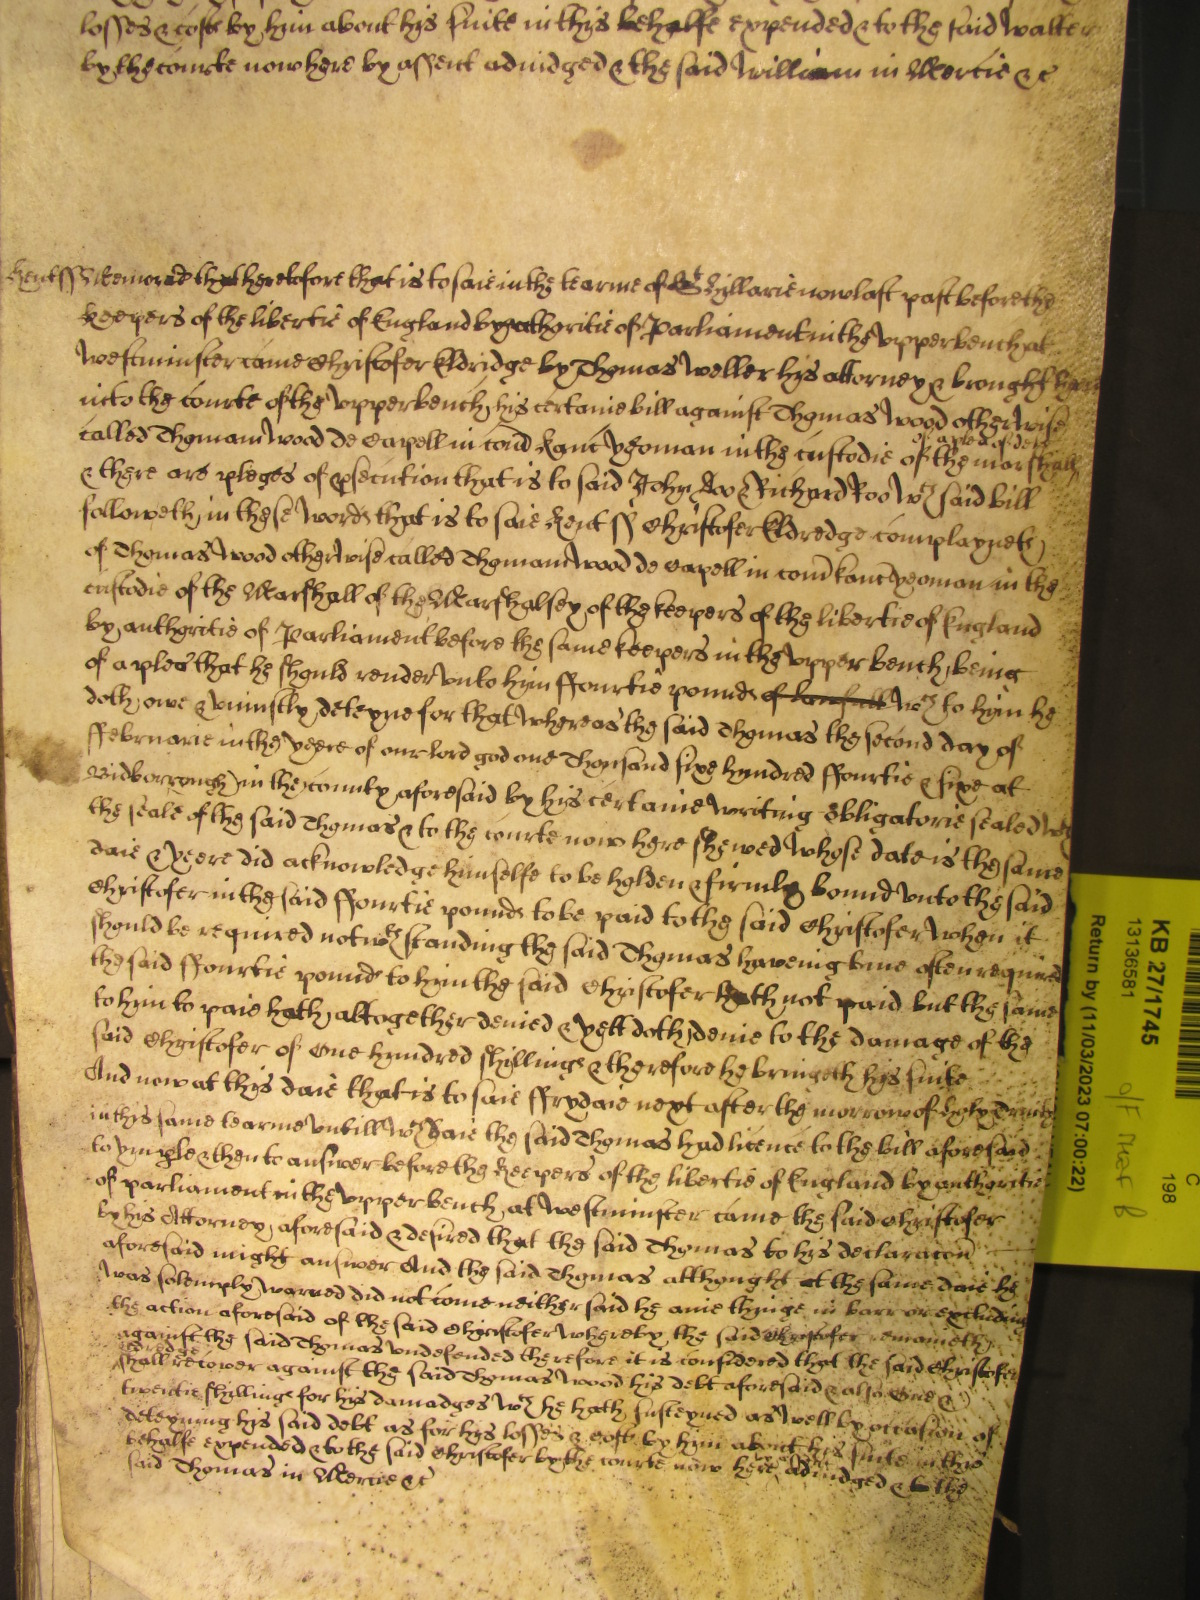 losses & cost by him about his suite in this behalfe expended & to the said Walter
by the courte now here by assent adiudged & the said William in Mercie &c
Kent ss Memord that heretofore that is to saie in the tearme of St Hillarie now last past before the
Keepers of the libertie of England by authoritie of Parliament in the upper bench at
Westminster came Christofer Eldridge by Thomas Weller his attorney & brought here
into the courte of the upper bench his certaine bill against Thomas Wood otherwise
called Thomam Wood de Capell in com Kanc yeoman in the custodie of the marshall
of a plea of debt
& there are pledges of psecution that is to said John Doo & Richard Roo wch said bill
followeth in these words that is to saie Kent ss Christofer Eldredge complayneth
of Thomas Wood otherwise called Thomam Wood de Capell in com Kanc yeoman in the
custodie of the Marshall of the Marshalsey of the keepers of the libertie of England
by authoritie of Parliament before the same keepers in the upper bench being
of a plea that he should render unto him ffourtie pounds of lawfull wch to him he
doth owe & uniustly deteyne for that whereas the said Thomas the second day of
ffebruarie in the yeere of our lord god one Thousand sixe hundred ffourtie & sixe at
Bidborrough in the county aforesaid by his certaine writing obligatorie sealed wth
the seale of the said Thomas & to the courte now here shewed whose date is the same
daie & yeere did acknowledge himselfe to be holden & firmly bound unto the said
Christofer in the said ffourtie pounds to be paid to the said Christofer when it
should be required notwthstanding the said Thomas haveing bene often required
the said ffourtie pounds to him the said Christofer hath not paid but the same
to him to paie hath altogether denied & yett doth denie to the damage of the
said Christofer of One hundred shillings & therefore he bringeth his suite
And now at this daie that is to saie ffrydaie next after the morrow of holy Trinity
in this same tearme untill wch daie the said Thomas had licence to the bill aforesaid
to imple & then to answer before the Keepers of the libertie of England by authoritie
of parliament in the upper bench at Westminster came the said Christofer
by his Attorney aforesaid & desired that the said Thomas to his declaracon
aforesaid might answer And the said Thomas althought at the same daie he
was solemply warned did not come neither said he anie thinge in barr or excluding
the action aforesaid of the said Christofer whereby the said Christofer remaineth
against the said Thomas undefended therefore it is considered that the said Christofer
shall recover against the said Thomas Wood his debt aforesaid & also One &
twentie shillings for his damadges wch he hath susteyned as well by occasion of
deteyning his said debt as for his losses & cost by him about his suite in this
behalfe expended & to the said Christofer by the courte now here adiudged & the
said Thomas in Mercie &c
KB 27/1745
13136581
Return by (11/03/2023 07:00:22)
C
198